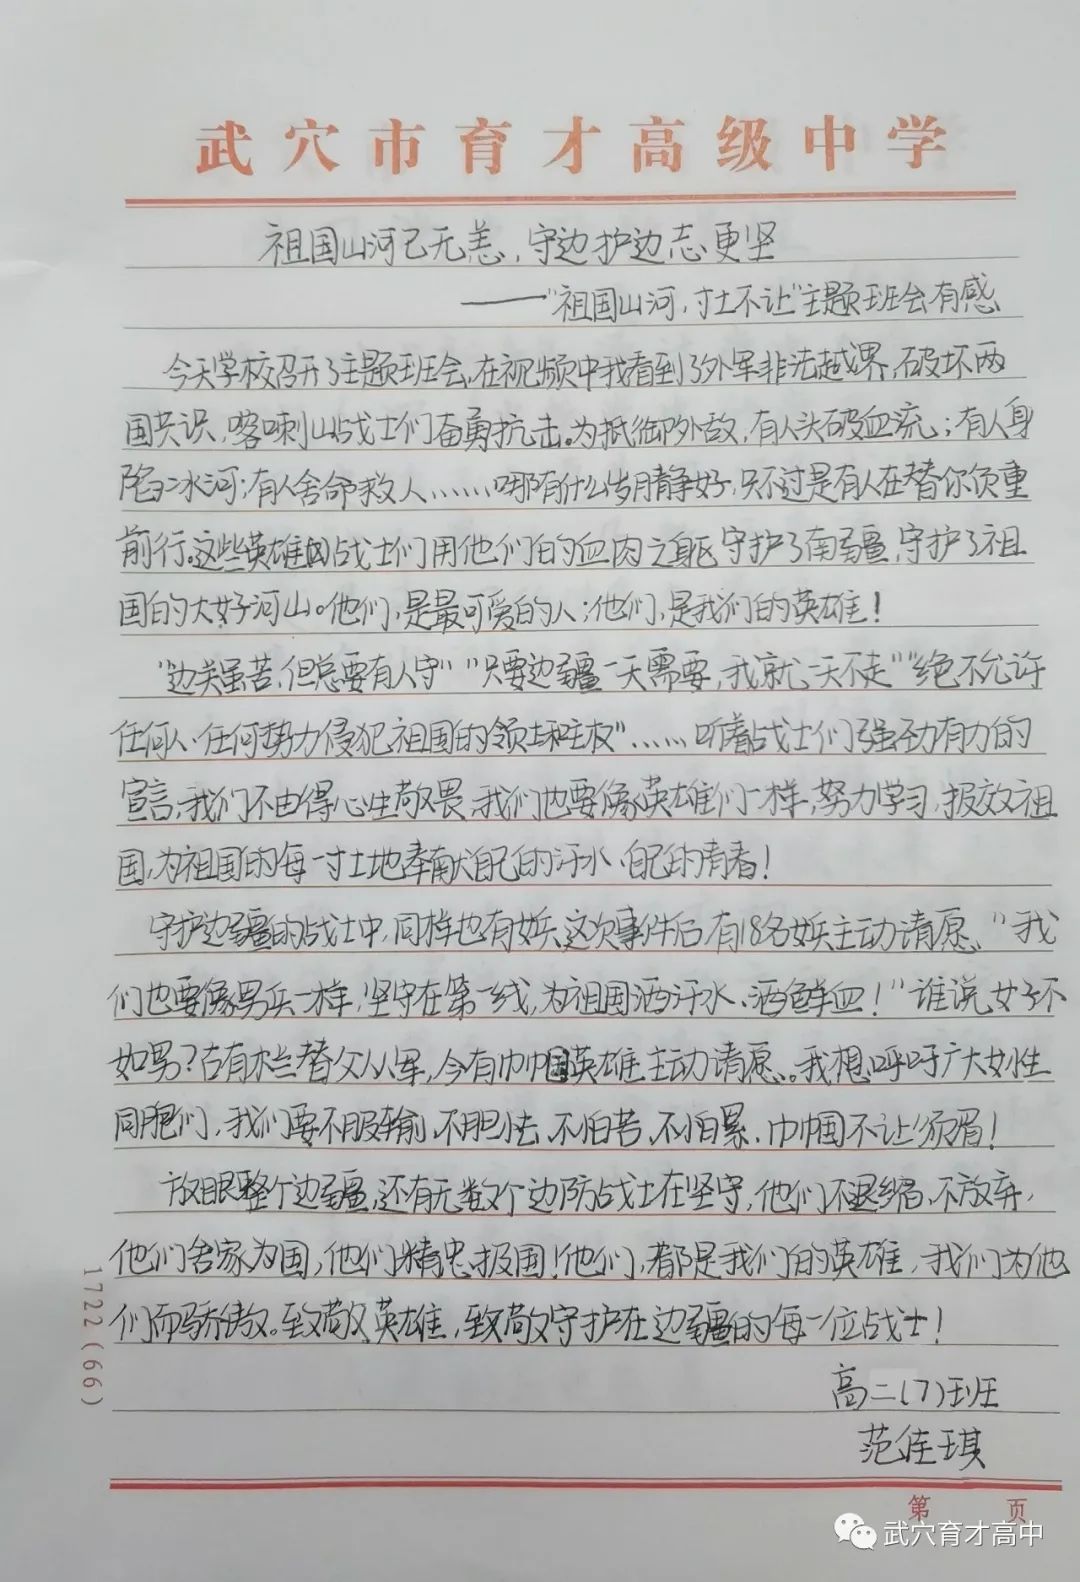 武穴市育才高级中学
祖国山河已无恙，守边护边志更坚
——“祖国山河，寸土不让”主题班会有感
今天学校召开了主题班会，在视频中我看到了外军非法越界，破坏两
国共识，喀喇山战士们奋勇抗击。为抵御外敌，有人头破血流；有人身
陷冰河；有人舍命救人……哪有什么岁月静好，只不过是有人在替你负重
前行。这些英雄战士们用他们的血肉之躯守护了南疆，守护了祖
国的大好河山。他们，是最可爱的人；他们，是我们的英雄！
“边关虽苦，但总要有人守”“只要边疆一天需要，我就一天不走”“绝不允许
任何人、任何势力侵犯祖国的领土和主权”……听着战士们强劲有力的
宣言，我们不由得心生敬畏，我们也要像英雄们一样，努力学习，报效祖
国，为祖国的每一寸土地奉献自己的汗水、自己的青春！
守护边疆的战士中，同样也有女兵，这次事件后有18名女兵主动请愿、“我
们也要像男兵一样，坚守在第一线，为祖国洒汗水、洒鲜血！”谁说女子不
如男？古有木兰替父从军，今有巾帼英雄主动请愿。我想呼吁广大女性
同胞们，我们要不服输、不胆怯、不怕苦、不怕累，巾帼不让须眉！
放眼整个边疆，还有无数个边防战士在坚守，他们不退缩，不放弃，
他们舍家为国，他们精忠报国！他们，都是我们的英雄，我们为他
们而骄傲。致敬英雄，致敬守护在边疆的每一位战士！
高二（7）班
范佳琪
1722(66)
第 页
武穴育才高中